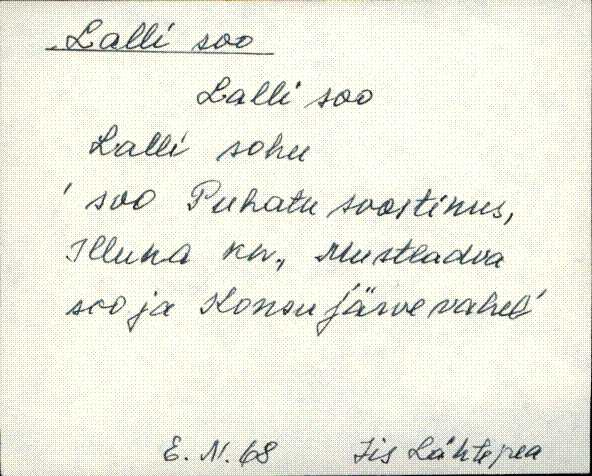 Lalli soo
Lalli soo
Lalli sohu
'soo Puhatu soostikus,
Illuka kn., Mustladva
soo ja Konsu järve vahel'
E. N. 68 Iis Lähtepea